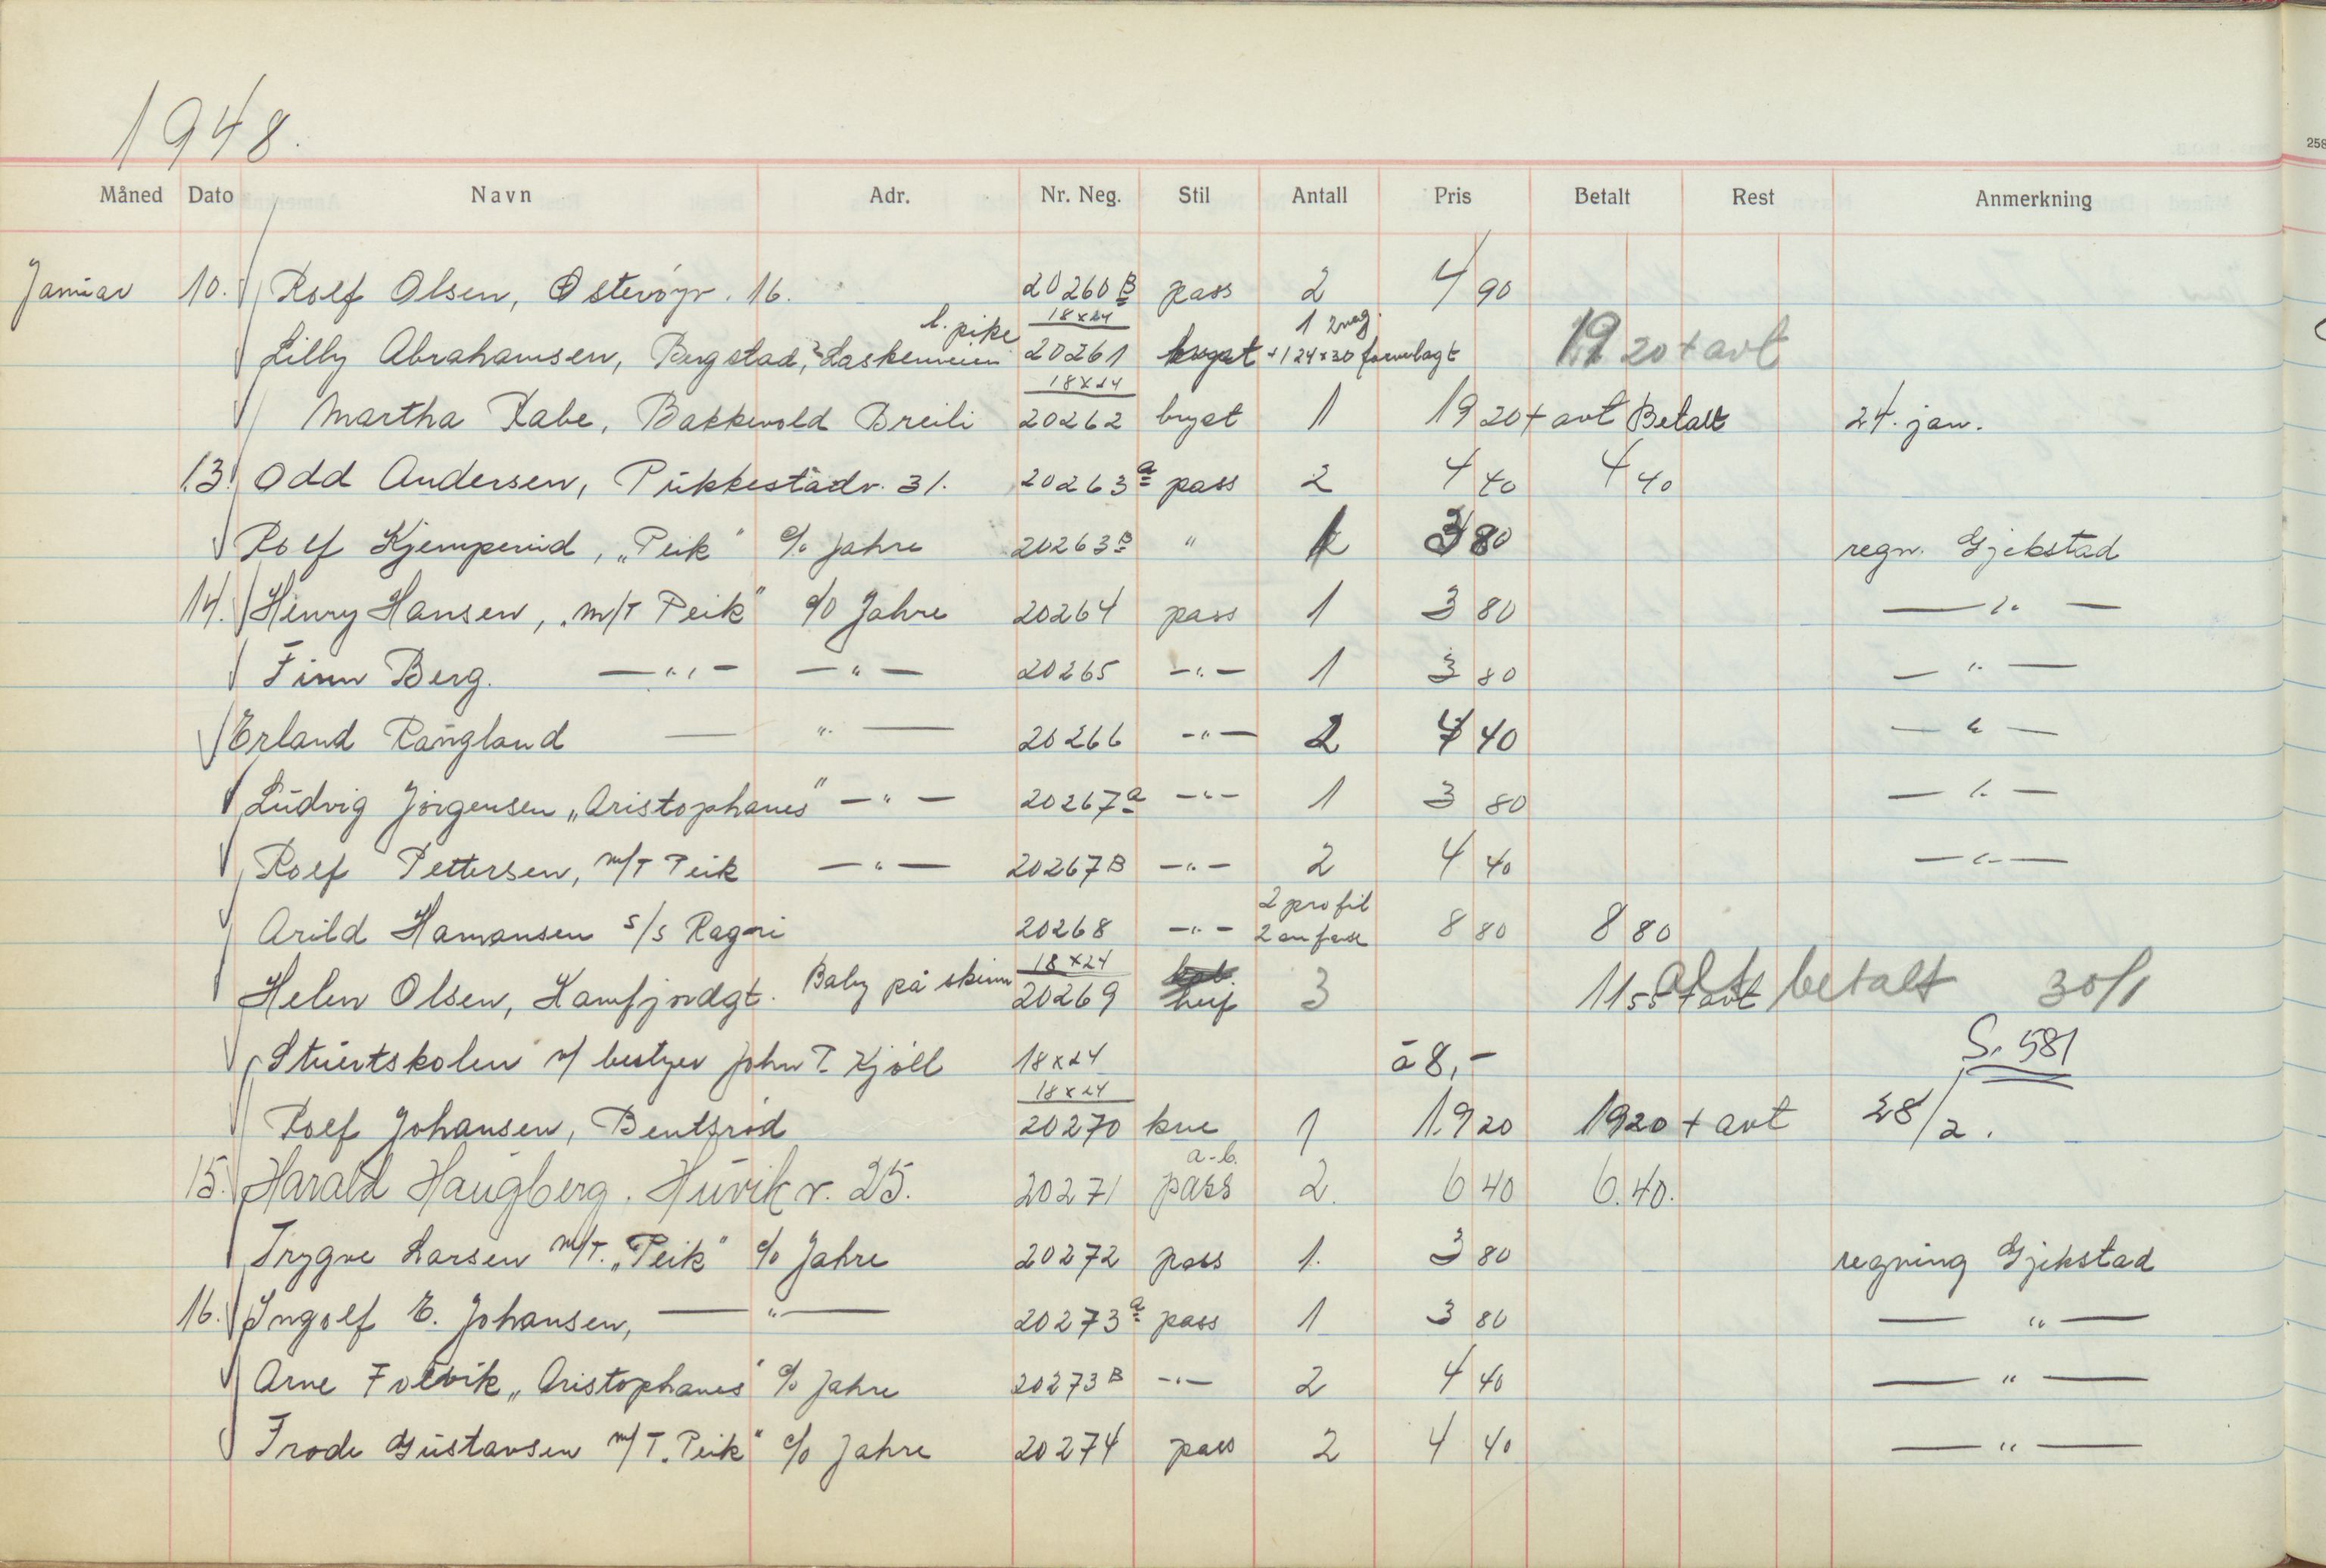 1948.
258
Måned Dato Navn Adr. Nr. Neg. Stil Antall Pris Betalt Rest Anmerkning
Januar 10. Rolf Olsen, Østerøyv. 16. 20260 B pass 2 4 90
l. pike 18x24 1 2 neg.
Lilly Abrahamsen, Bugstad, 20261 bryst + 1 24x30 farvelagt 19 20 + avt
18x24
Martha Rabe, Bakkevold Breili 20262 bryst 1 19 20 + avt Betalt 24. jan.
13. Odd Andersen, Pukkestadv. 31. 20263 a pass 2 4 40 4 40
Rolf Kjemperud, „Peik" c/o Jahre 20263 B " 1 3 80 regn. Gjekstad
14. Henry Hansen, „M/T Peik" c/o Jahre 20264 pass 1 3 80 — " —
Finn Berg. — " — — " — 20265 — " — 1 3 80 — " —
Erland Rangland — " — 20266 — " — 2 4 40 — " —
Ludvig Jörgensen „Aristophanes" — " — 20267 a — " — 1 3 80 — " —
Rolf Pettersen, M/T Peik — " — 20267 B — " — 2 4 40 — " —
2 profil
Arild Hamansen S/S Ragni 20268 — " — 2 en face 8 80 8 80
18x24
Helen Olsen, Kamfjordgt. Baby på skinn 20269 3 11 55 + avt alt betalt 30/1
Stuertskolen v/ bestyrer John T. Kjöll 18x24 à 8,- S. 581
18x24
Rolf Johansen, Bentsrød 20270 kne 1 19 20 19 20 + avt 28/2.
a-b.
15. Harald Haugberg. Huvik v. 25. 20271 pass 2. 6 40 6.40.
Trygve Larsen M/T. „Peik" c/o Jahre 20272 pass 1. 3 80 regning Gjekstad
16. Ingolf E. Johansen, — " — 20273 a pass 1 3 80 — " —
Arne Folvik „Aristophanes" c/o Jahre 20273 B — " — 2 4 40 — " —
Frode Gustavsen M/T. Peik" c/o Jahre 20274 pass 2 4 40 — " —